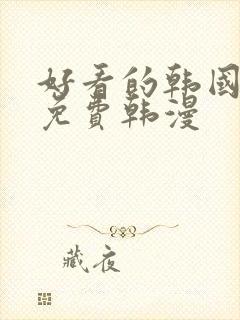 好看的韩國
免費韩漫
藏夜